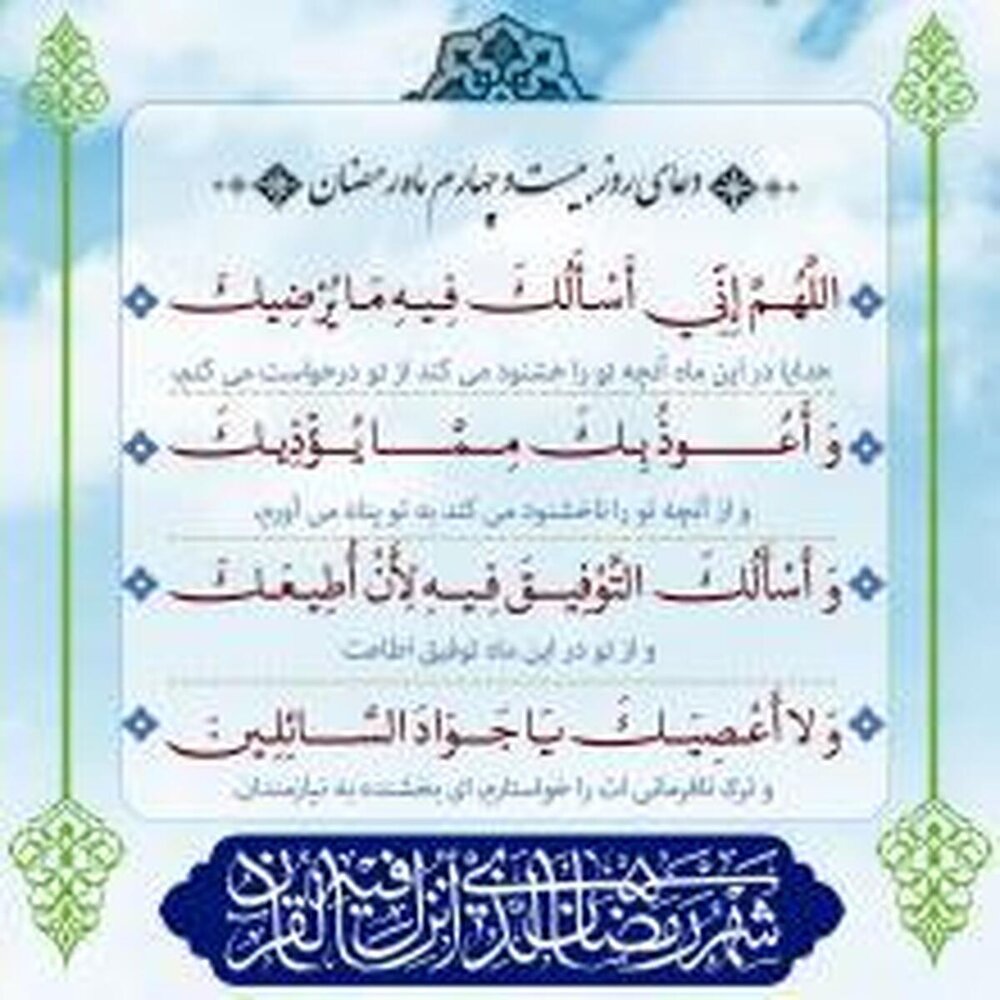 دعای روز بیست و چهارم ماه رمضان
اللَّهُمَّ إِنِّي أَسْأَلُكَ فِيهِ مَا يُرْضِيكَ
خدایا در این ماه آنچه تو را خشنود می کند از تو درخواست می کنم،
وَ أَعُوذُ بِكَ مِمَّا يُؤْذِيكَ
و از آنچه تو را ناخشنود می کند به تو پناه می آورم،
وَ أَسْأَلُكَ التَّوْفِيقَ فِيهِ لِأَنْ أُطِيعَكَ
و از تو در این ماه توفیق اطاعت
وَ لا أَعْصِيَكَ يَا جَوَادَ السَّائِلِينَ
و ترک نافرمانی ات را خواستارم، ای بخشنده به نیازمندان.
شهر رمضان الذي انزل فيه القرآن